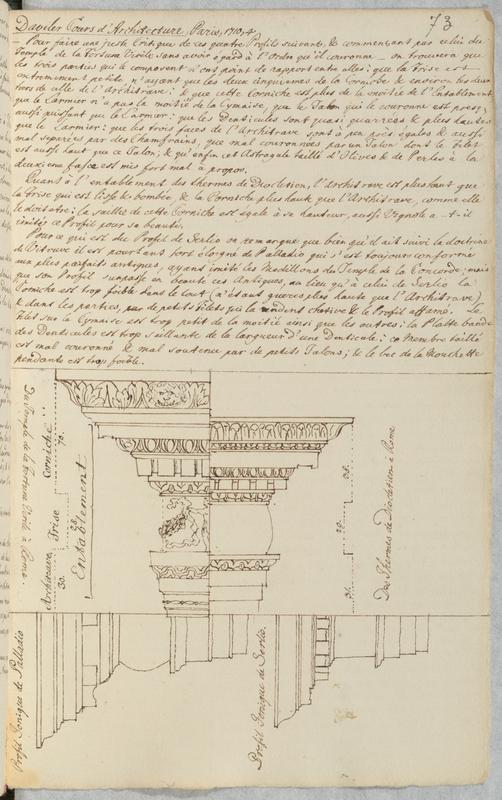 73
Daviler Cours d'Architecture, Paris, 1710, 4.
Pour faire une juste Critique de ces quatre Profils suivants, & commençant par celui du
Temple de la Fortune Virile sans avoir égard à l'Ordre qu'il couronne on trouvera que
les trois parties qui le composent n'ont point de rapport entre elles; que la Frise est
extremement petite, n'ayant que les deux cinquiemes de la Corniche & environ les deux
tiers de celle de l'Architrave; & que cette Corniche est plus de la moitié de l'Entablement
que le Larmier n'a pas la moitié de la Cymaise, que le Talon qui le couronne est presq,
aussi puissant que le Larmier: que les Denticules sont quasi quarrées & plus hautes
que le Larmier: que les trois faces de l'Architrave sont à peu près égales & aussi
séparées par des Chamfrains, que mal couronnées par un Talon dont le filet
est aussi haut que ce Talon; & qu'enfin cet Astragale taillé d'Olives & de Perles à la
deuxieme face est mis fort mal à propos.
Quant à l'entablement des thermes de Diocletien, l'Architrave est plus haut que
la frise qui est lisse & bombée, & la Corniche plus haute que l'Architrave, comme elle
le doit etre; la saillie de cette Corniche est egale à sa hauteur, aussi Vignole a-t-il
imité ce Profil pour sa beauté.
Pour ce qui est du Profil de Serlio on remarque que bien qu'il ait suivi la doctrine
de Vitruve il est pourtant fort éloigné de Palladio qui s'est toujours conformé
aux plus parfaits antiques, ayant imité les Modillons du Temple de la Concorde; mais
que son Profil surpasse en beauté ces Antiques, au lieu qu'à celui de Serlio la
Corniche est trop foible dans le tout (n'étant gueres plus haute que l'Architrave)
& dans les parties, par de petits filets qui la rendent chetive & le Profil affamé. Le
Filet sur la Cymaise est trop petit de la moitié ainsi que les autres: la Platte bande
des Denticules est trop saillante de la largeur d'une Denticule; ce Membre taillé
est mal couronné & mal soutenu par de petits Talons; & le bec de la Mouchette
pendante est trop foible.
Du Temple de la Fortune Virile à Rome
Architrave, Frise Corniche
30. 28. 70.
Entablement
38.
20.
31.
Des Thermes de Diocletien à Rome
Profil Ionique de Palladio
Profil Ionique de Serlio.